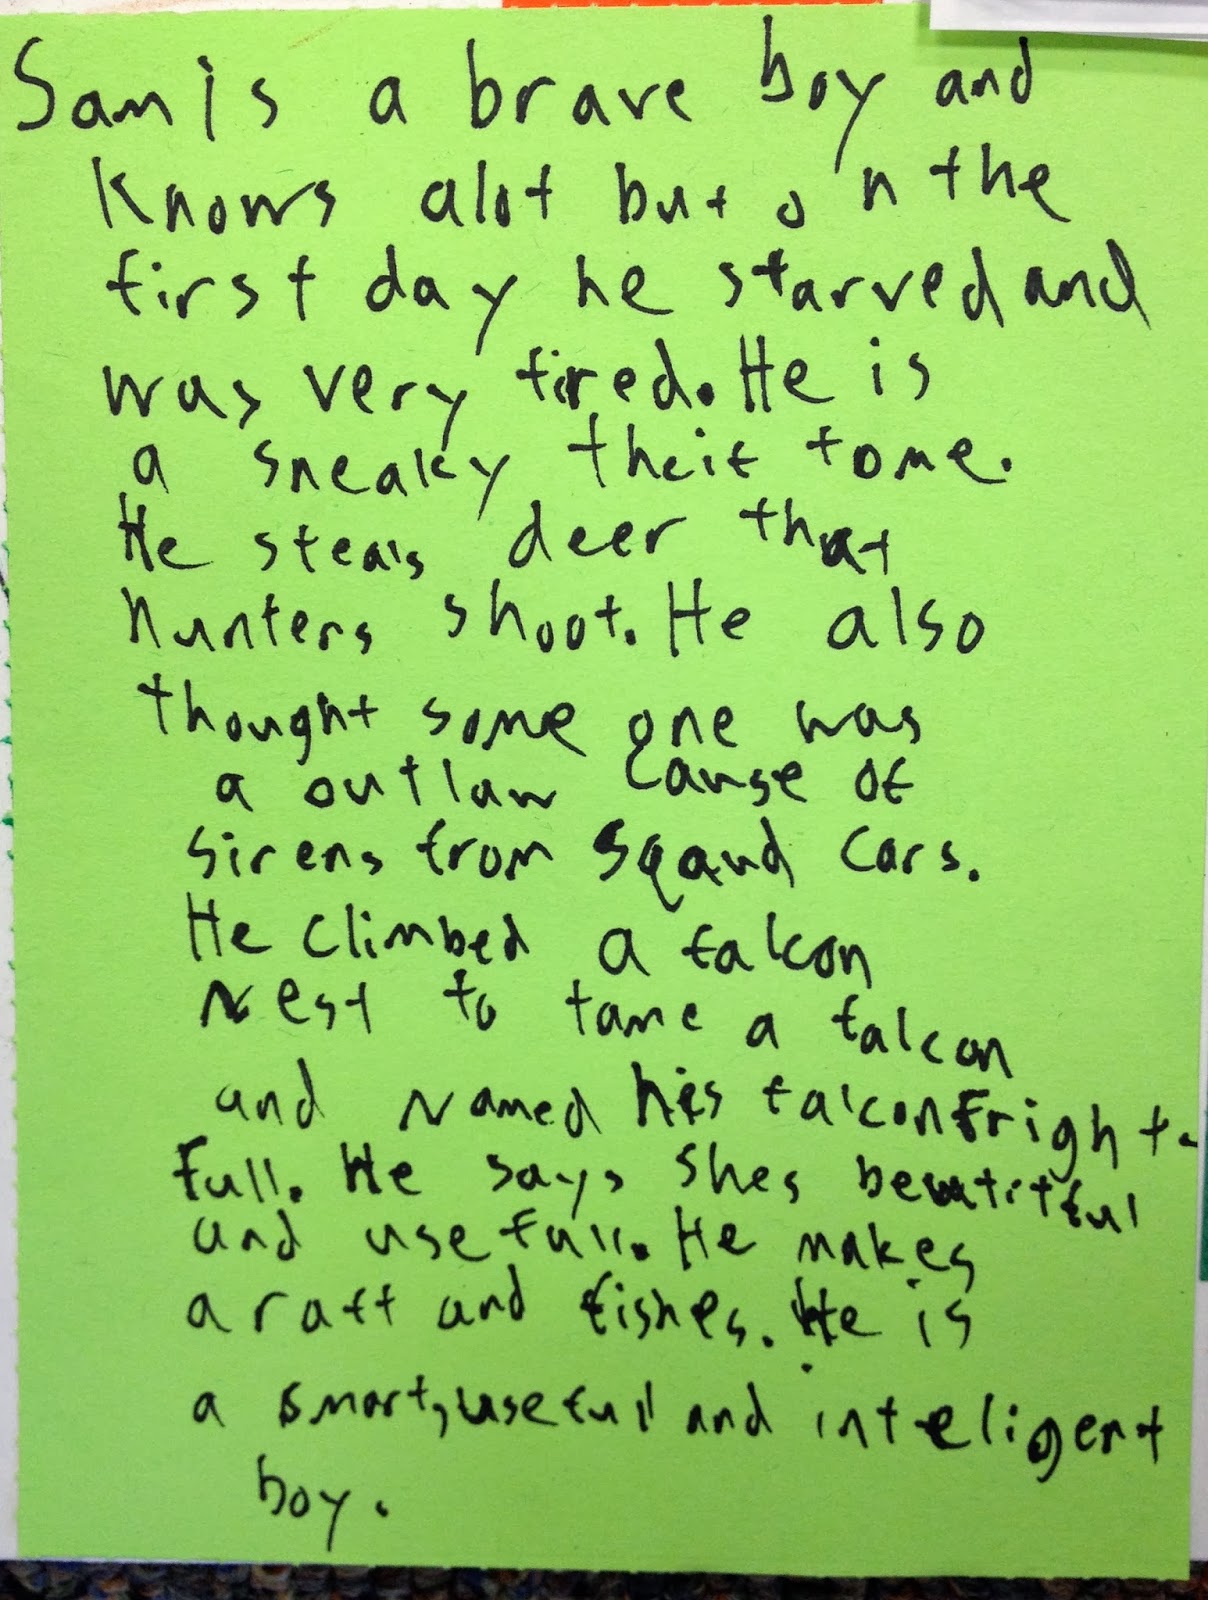 Sam is a brave boy and
knows alot but on the
first day he starved and
was very tired. He is
a sneaky theif to me.
He steals deer that
hunters shoot. He also
thought some one was
a outlaw cause of
sirens from sqaud cars.
He climbed a falcon
nest to tame a falcon
and named his falcon Fright-
full. He says shes beautitful
and usefull. He makes
a raft and fishes. He is
a smart, usefull and inteligent
boy.